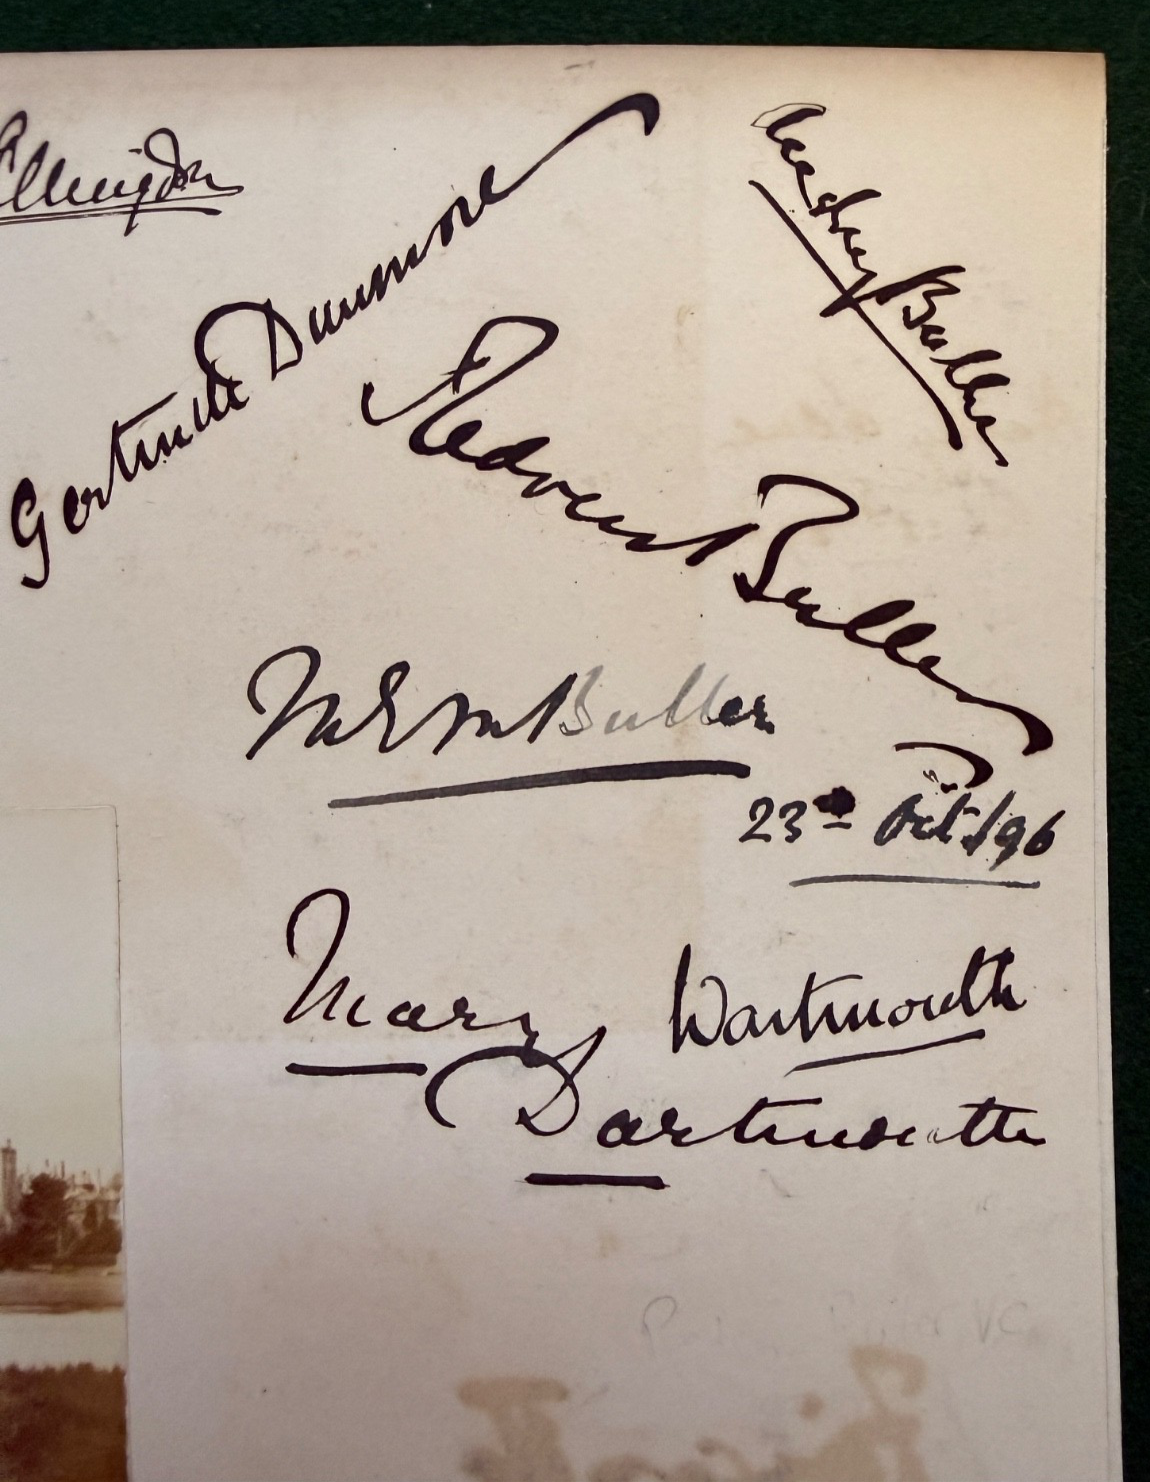 Gertrude Dunmore
Audrey Buller
Redvers Buller
M E M Buller
23rd Oct. /96
Mary Dartmouth
Dartmouth
VC